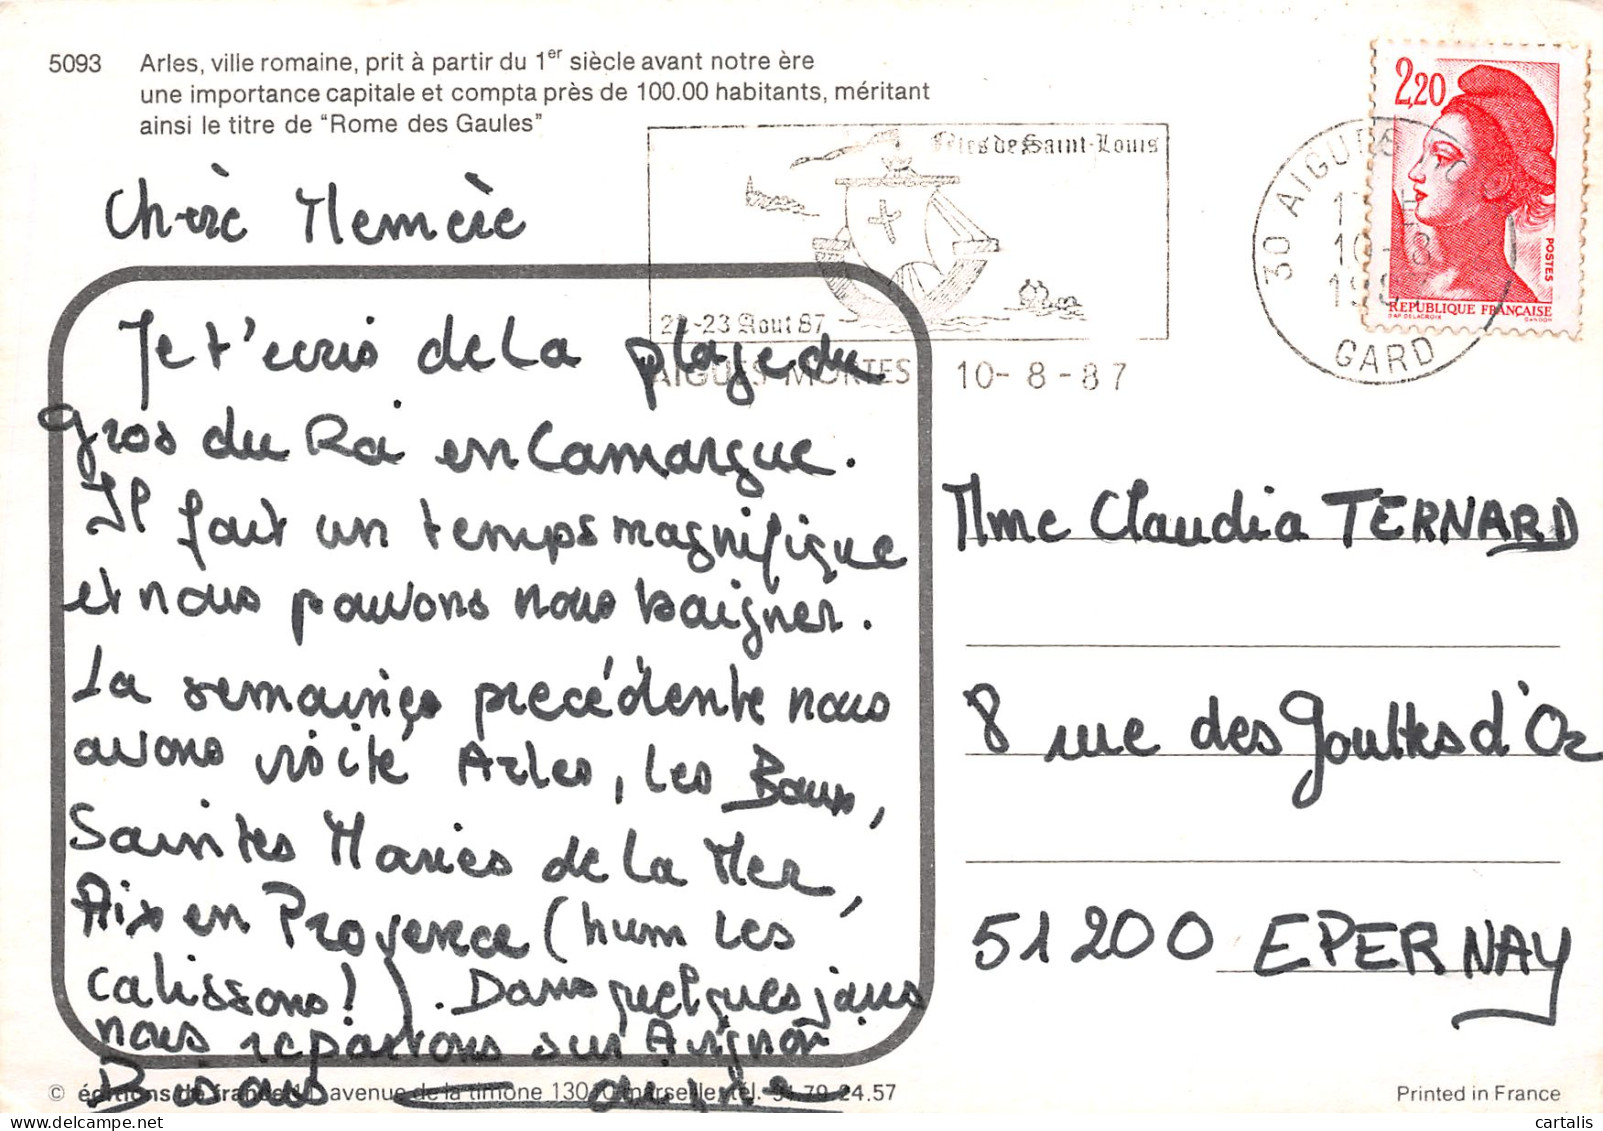 5093 Arles, ville romaine, prit à partir du 1er siècle avant notre ère
une importance capitale et compta près de 100.00 habitants, méritant
ainsi le titre de "Rome des Gaules"
Fêtes de Saint-Louis
22-23 Aout 87
AIGUES-MORTES 10-8-87
30 AIGUES
10-8
GARD
2,20
POSTES
REPUBLIQUE FRANÇAISE
DAP. DELACROIX GANDON
Chère Memère
Je t'ecris de la plage du
Gros du Roi en Camargue.
Il fait un temps magnifique
et nous pouvons nous baigner.
La semaine précédente nous
avons visité Arles, les Baux,
Saintes Maries de la Mer,
Aix en Provence (hum les
calissons!). Dans quelques jours
nous repartons sur Avignon
Bisous
Mme Claudia TERNARD
8 rue des Gouttes d'Or
51200 EPERNAY
© éditions de france avenue de la timone 13010 marseille tél. 91.79.24.57
Printed in France
cartalis
www.delcampe.net